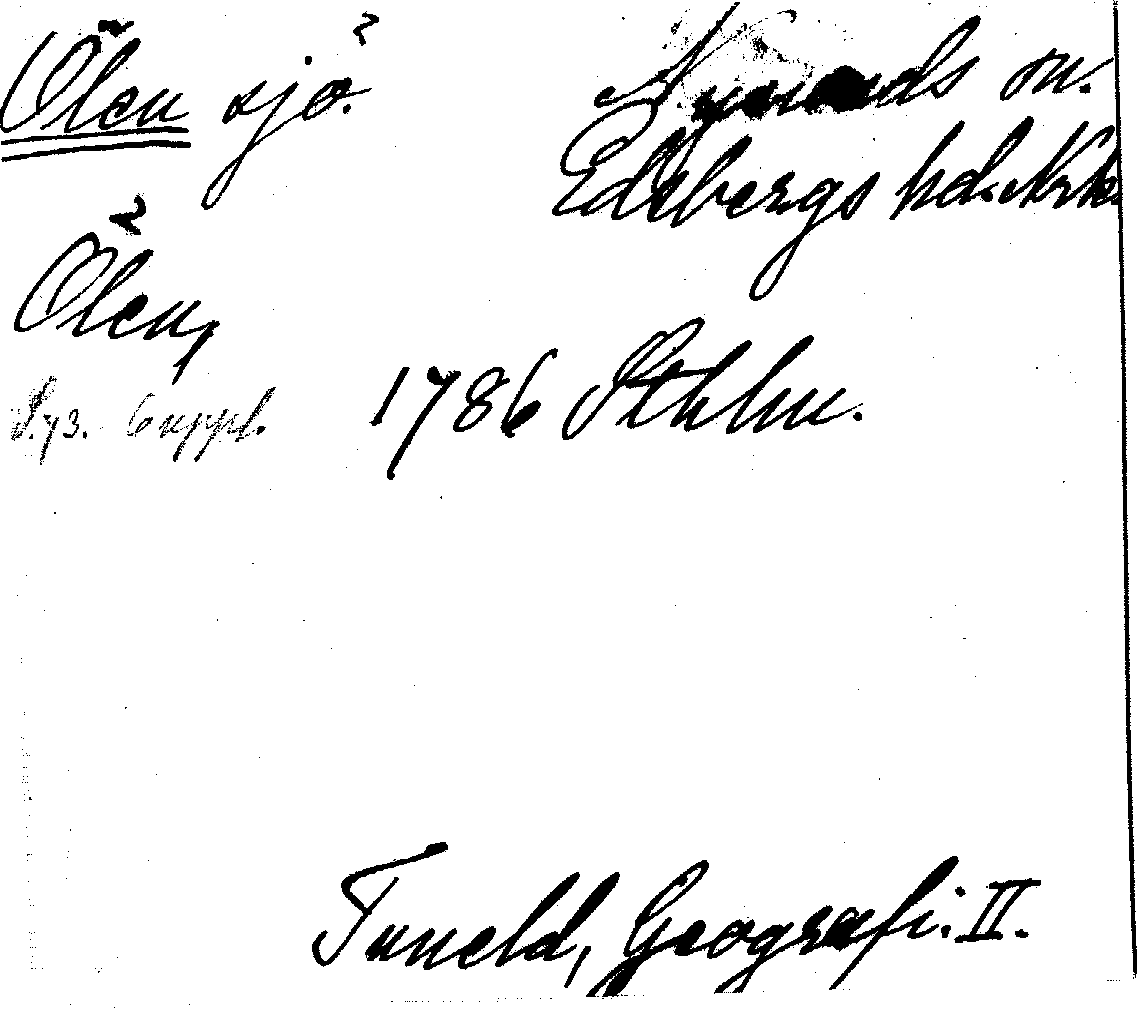 Ölen sjö.
Nysunds sn.
Edsbergs hd. Nrk.
Ölen,
S. 73. 6 uppl.
1786 Sthlm.
Tuneld, Geografi. II.